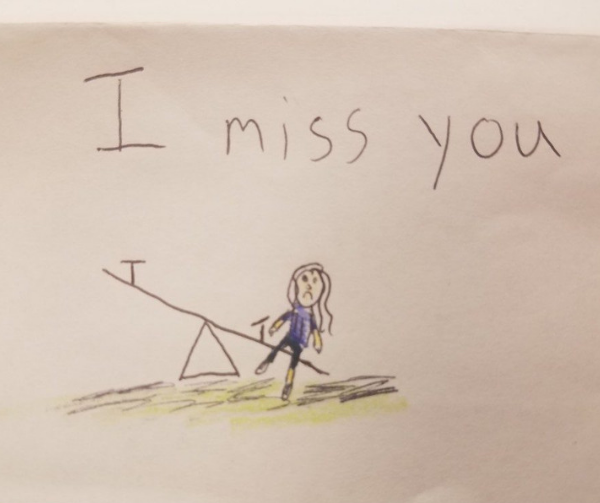 I miss you